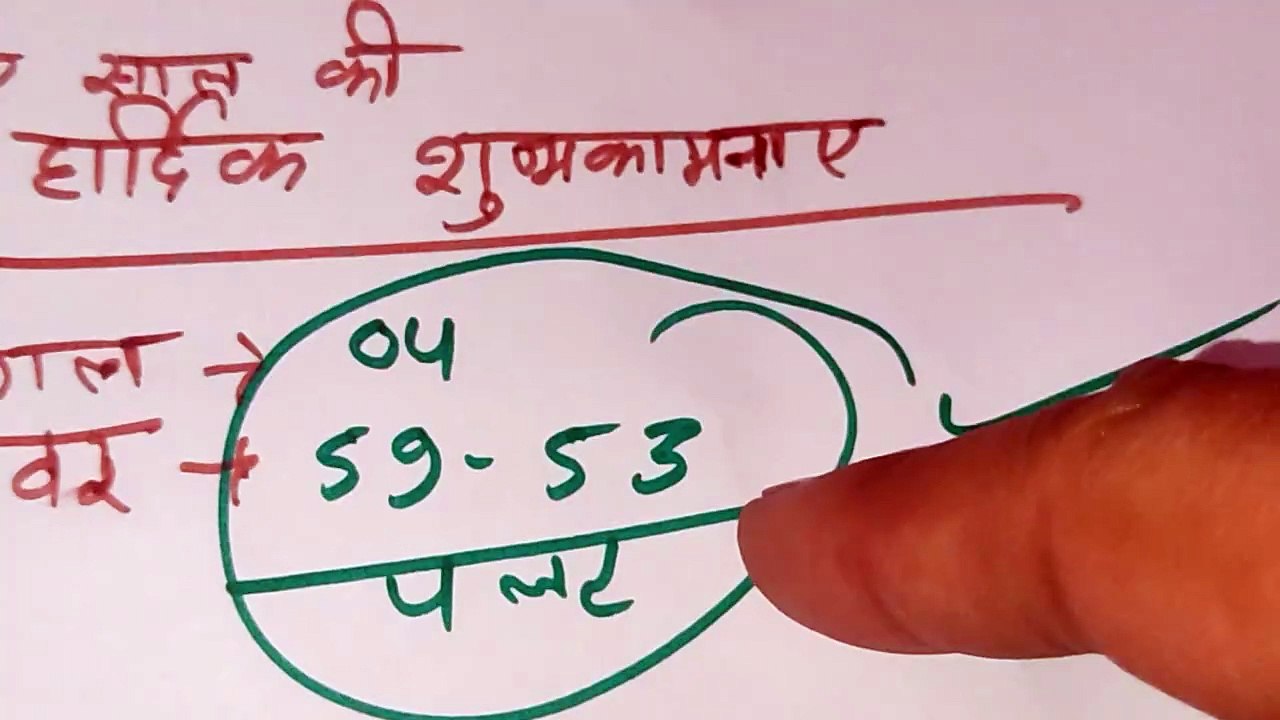 साल की
हार्दिक शुभकामनाए
04
59-53
पलट